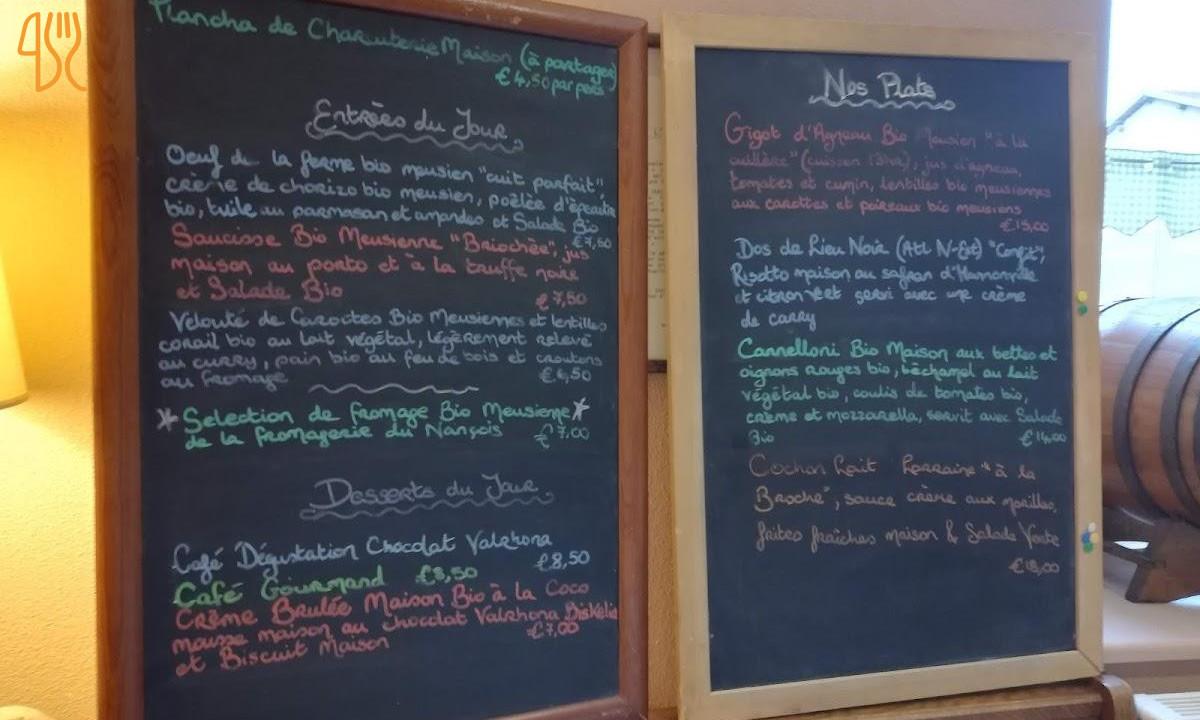 Plancha de Charcuterie Maison (à partager)
€4,50 par pers
Entrées du Jour
Oeuf de la ferme bio meusien "cuit parfait",
crème de chorizo bio meusien, poêlée d'épeautre
bio, tuile au parmesan et amandes et Salade Bio
€7,50
Saucisse Bio Meusienne "Briochée", jus
maison au porto et à la truffe noire
et Salade Bio
€7,50
Velouté de Carottes Bio Meusiennes et lentilles
corail bio au lait végétal, légèrement relevé
au curry, pain bio au feu de bois et croutons
au fromage
€6,50
Selection de fromage Bio Meusienne
de la fromagerie du Nançois €7,00
Desserts du Jour
Café Dégustation Chocolat Valrhona
€8,50
Café Gourmand €8,50
Crème Brulée Maison Bio à la Coco
mousse maison au chocolat Valrhona
et Biscuit Maison €7,00
Nos Plats
Gigot d'Agneau Bio Meusien "à la
cuillère" (cuisson), jus d'agneau,
tomates et cumin, lentilles bio meusiennes
aux carottes et poireaux bio meusiens
€15,00
Dos de Lieu Noir (Atl N-Est) "Confit",
Risotto maison au safran d'
et citron vert servi avec une crème
de carry
Cannelloni Bio Maison aux bettes et
oignons rouges bio, béchamel au lait
végétal bio, coulis de tomates bio,
crème et mozzarella, servit avec Salade
Bio €14,00
Cochon Lait Lorraine "à la
Broche", sauce crème aux morilles,
frites fraîches maison & Salade Verte
€18,00